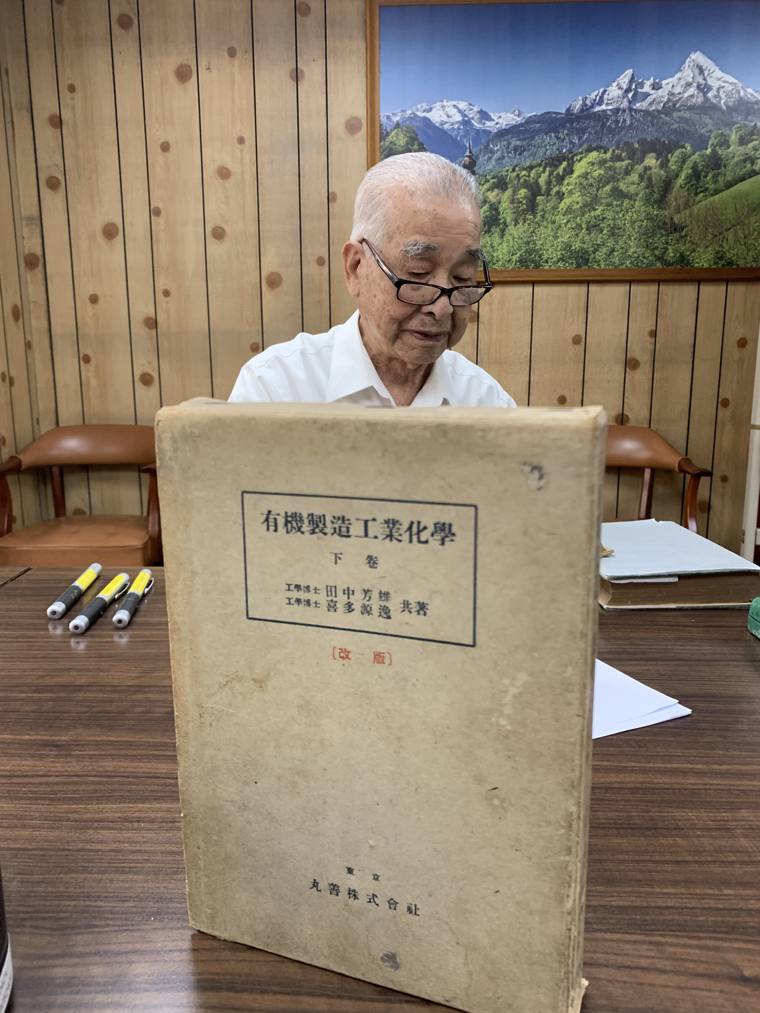 有機製造工業化學
下卷
工學博士 田中芳雄
工學博士 喜多源逸 共著
〔改版〕
東京
丸善株式會社